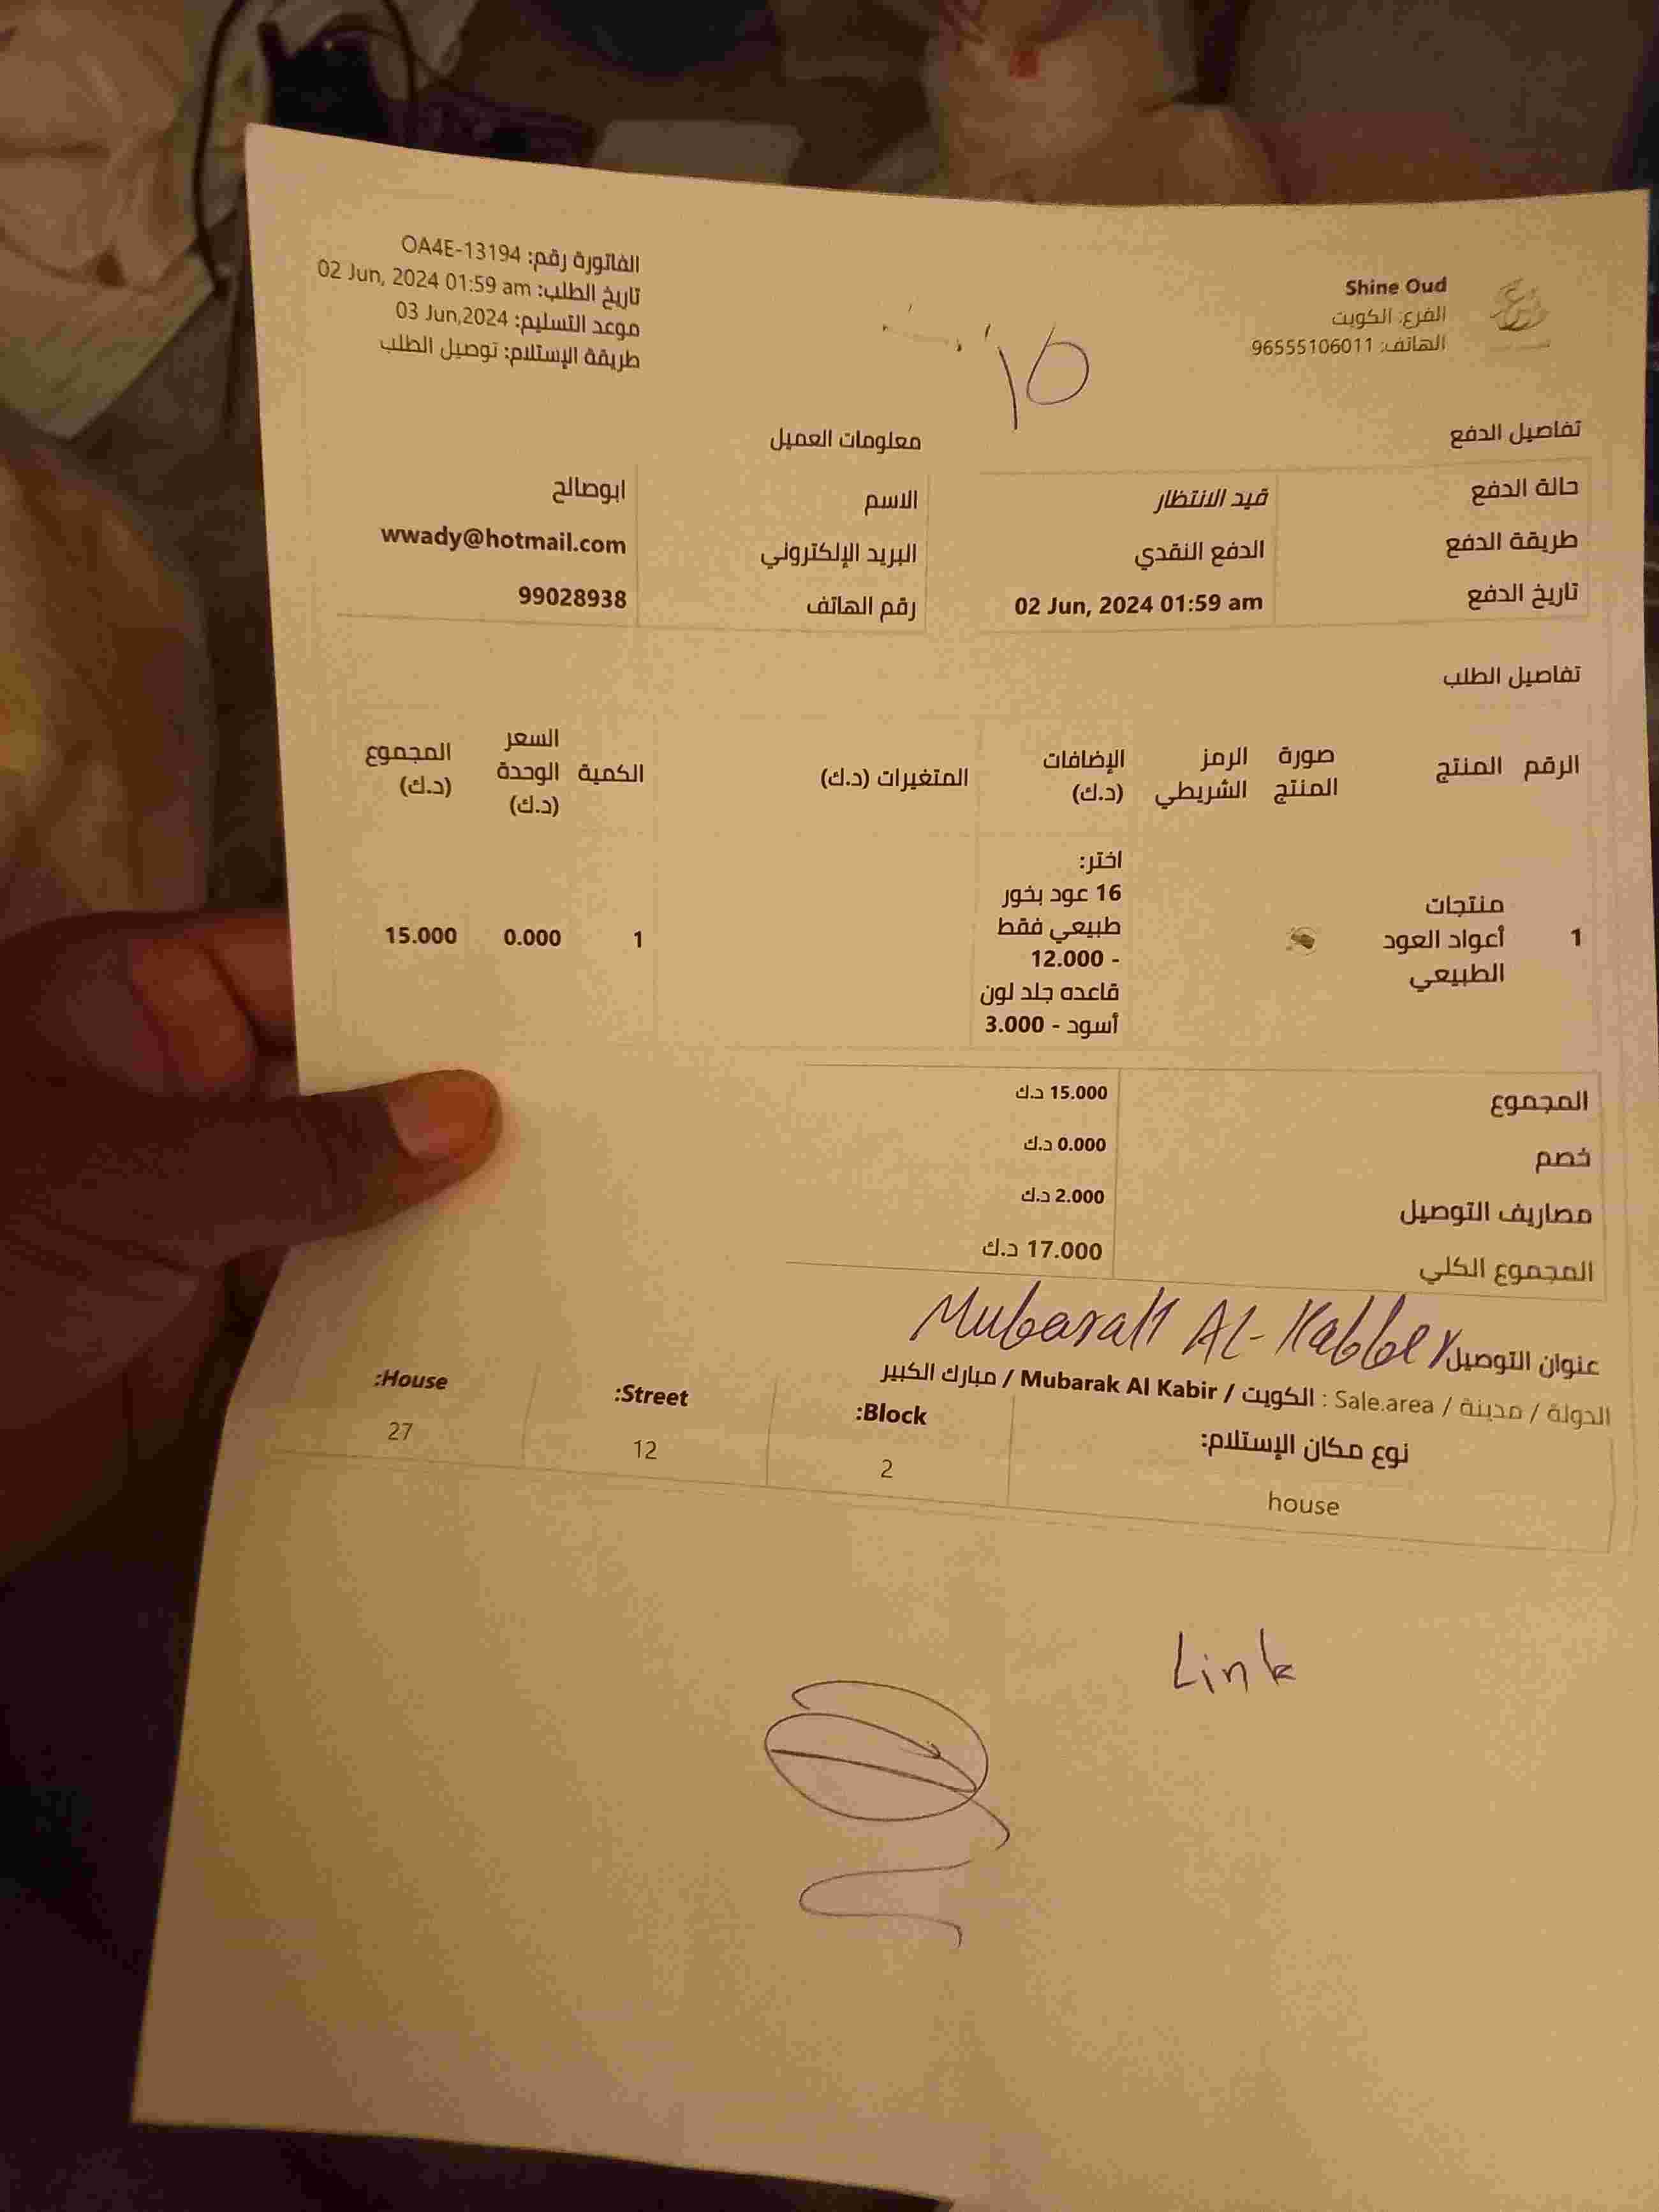 Shine Oud
الفرع: الكويت
الهاتف: 96555106011
الفاتورة رقم: OA4E-13194
تاريخ الطلب: 02 Jun, 2024 01:59 am
موعد التسليم: 03 Jun,2024
طريقة الإستلام: توصيل الطلب
تفاصيل الدفع
حالة الدفع قيد الانتظار
طريقة الدفع الدفع النقدي
تاريخ الدفع 02 Jun, 2024 01:59 am
معلومات العميل
الاسم ابوصالح
البريد الإلكتروني wwady@hotmail.com
رقم الهاتف 99028938
تفاصيل الطلب
الرقم المنتج صورة المنتج الرمز الشريطي الإضافات (د.ك) المتغيرات (د.ك) الكمية السعر الوحدة (د.ك) المجموع (د.ك)
1 منتجات أعواد العود الطبيعي
اختر:
16 عود بخور
طبيعي فقط
- 12.000
قاعده جلد لون
أسود - 3.000
1 0.000 15.000
المجموع 15.000 د.ك
خصم 0.000 د.ك
مصاريف التوصيل 2.000 د.ك
المجموع الكلي 17.000 د.ك
عنوان التوصيل Mubarak AL-
الدولة / مدينة / Sale.area : الكويت / Mubarak Al Kabir / مبارك الكبير
نوع مكان الإستلام: Block: Street: House:
house 2 12 27
Link